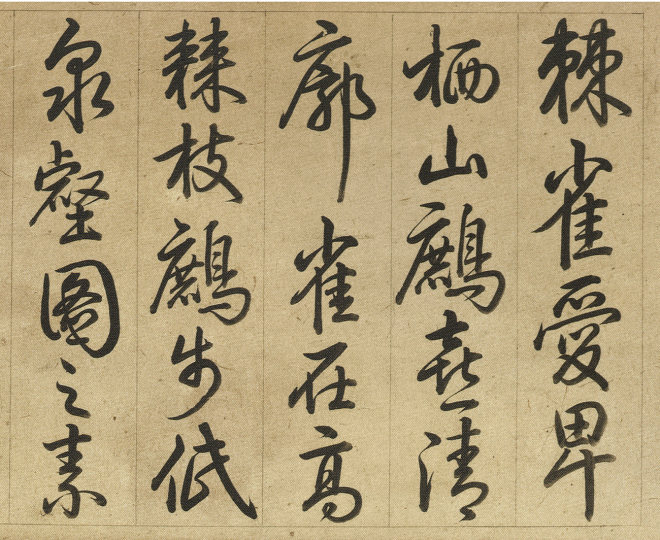 棘雀愛卑
栖山鷓喜清
廓雀在高
棘枝鷓步低
泉壑圖之素